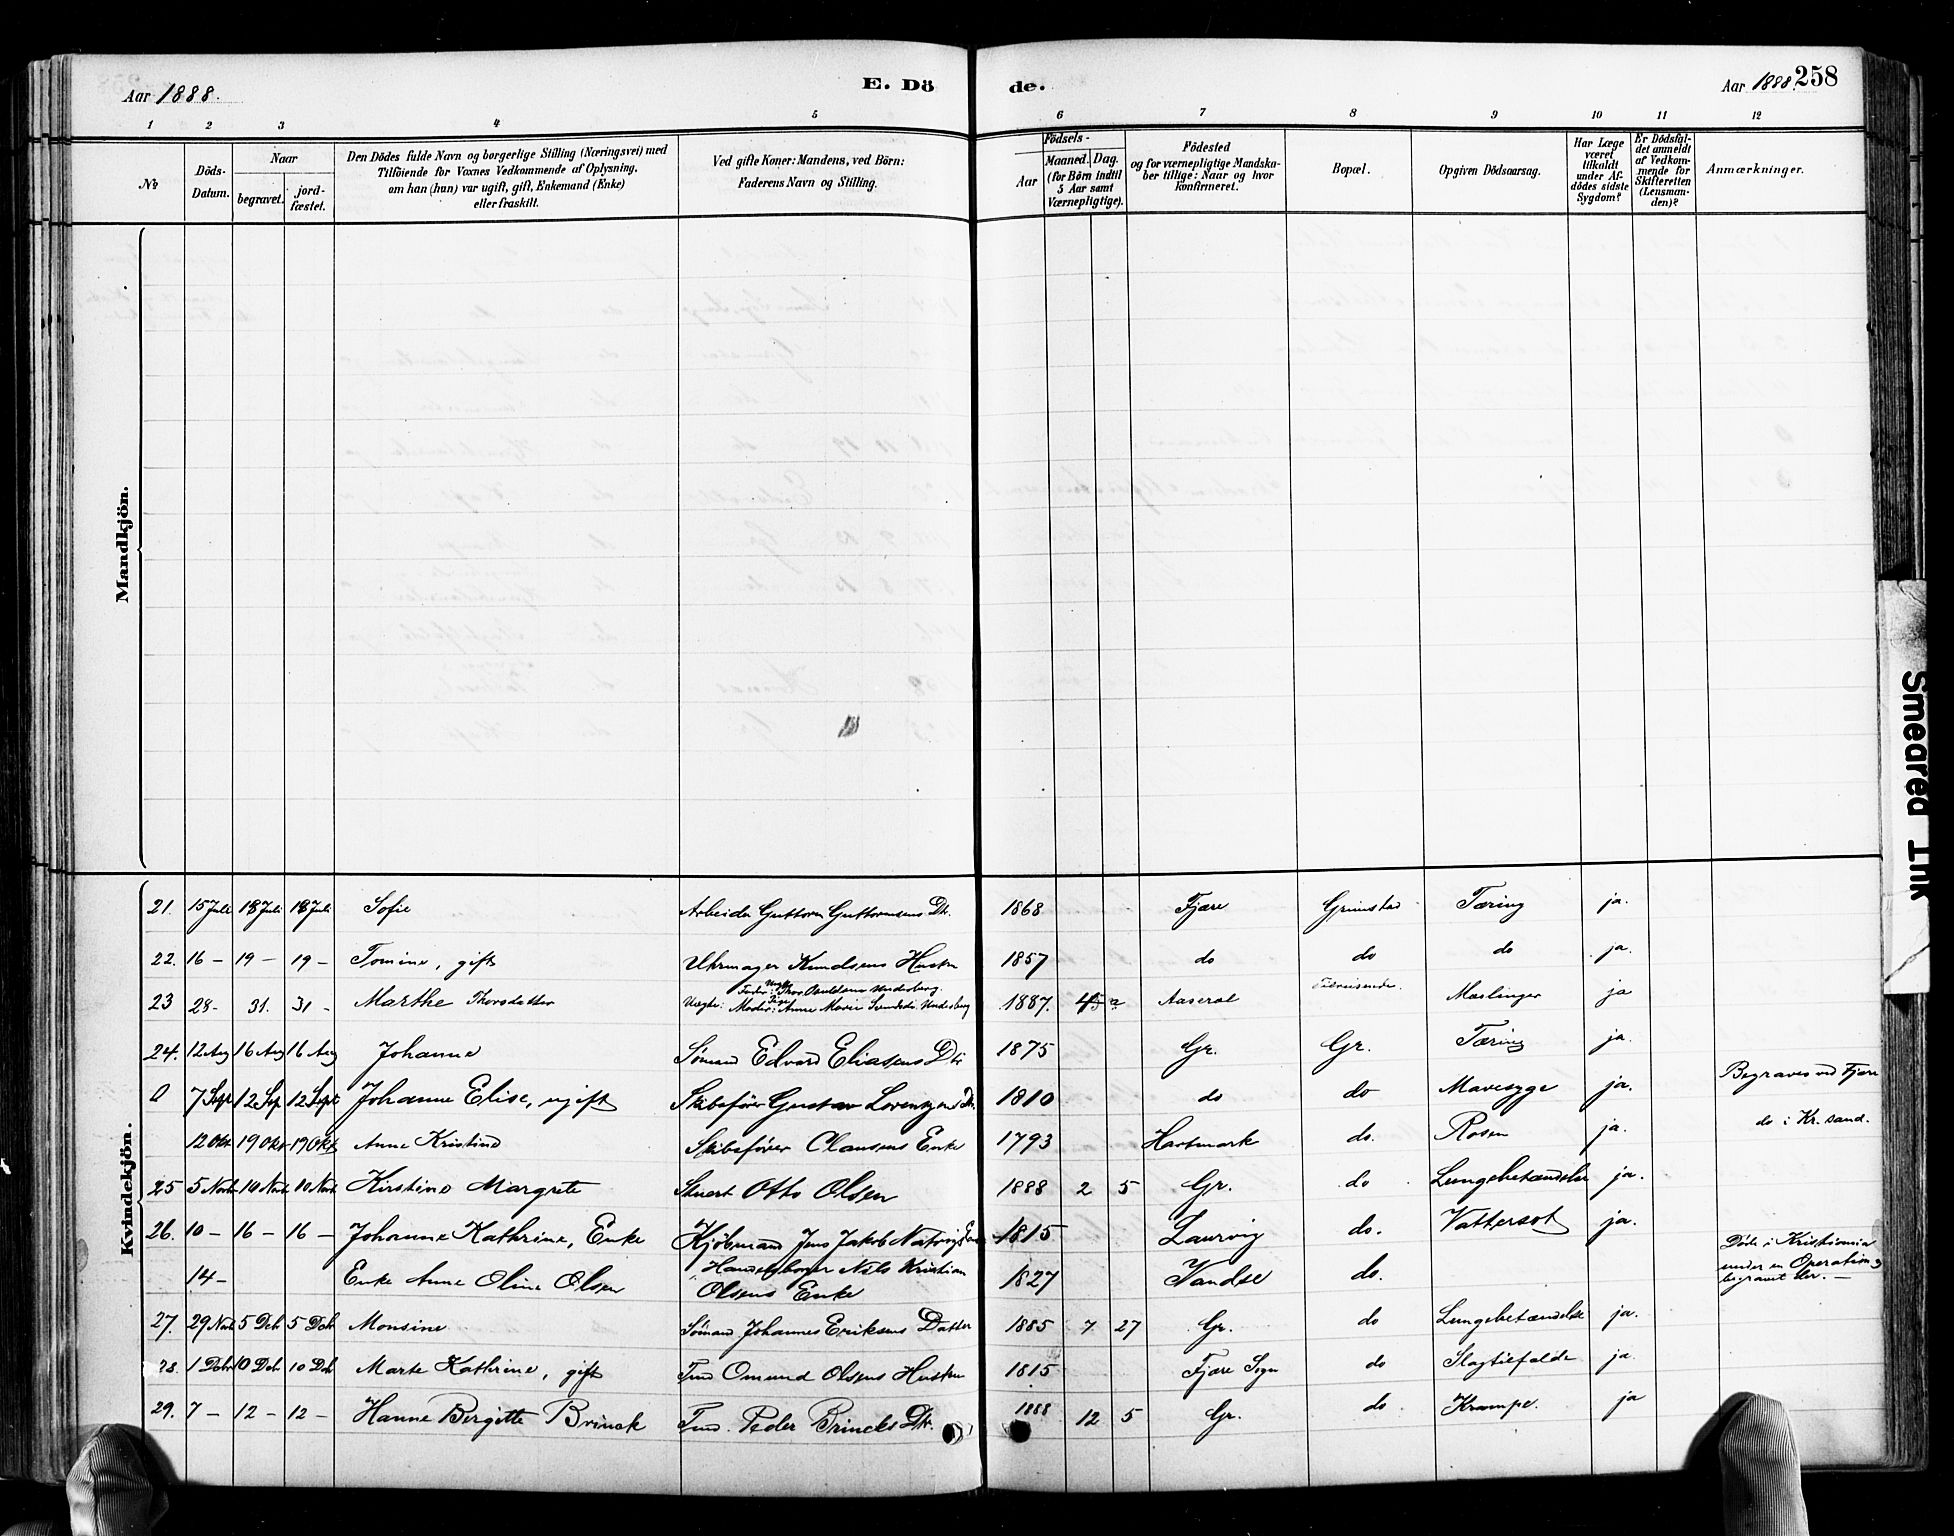 Aar 1888.
E. Dö
de.
Aar 1888. 258
1 2 3 4 5 6 7 8 9 10 11 12
No
Döds-Datum.
Naar
begravet.
jord-fæstet.
Den Dödes fulde Navn og borgerlige Stilling (Næringsvei) med
Tilföiende for Voxnes Vedkommende af Oplysning,
om han (hun) var ugift, gift, Enkemand (Enke)
eller fraskilt.
Ved gifte Koner: Mandens, ved Börn:
Faderens Navn og Stilling.
Födsels-
Aar
Maaned. Dag.
(for Börn indtil
5 Aar samt
Værnepligtige).
Födested
og for værnepligtige Mandska-
ber tillige: Naar og hvor
konfirmeret.
Bopæl.
Opgiven Dödsaarsag.
Har Læge
været
tilkaldt
under Af-
dödes sidste
Sygdom?
Er Dödsfal-
det anmeldt
af Vedkom-
mende for
Skifteretten
(Lensman-
den)?
Anmærkninger.
Mandkjön.
Smeared Ink
Kvindekjön.
21. 15 Juli 18 Juli 18 Juli Sofie Arbeider Guttorm Guttormsens Dtr. 1868 Fjære Grimstad Tæring ja.
22. 16 - 19 - 19 - Tomine, gift Uhrmager Knudsens Hustru 1857 do do do ja.
23 28- 31. 31 - Marthe Thorsdatter Uægte: Moder: Anne Marie 1887. Aaseral Mæslinger ja
24. 12 Aug 16 Aug 16 Aug Johanne Sømand Edvard Eliasens Dtr 1875 Gr. Gr. Tæring ja.
0 7 Sept 12 Sep 12 Sept Johanne Elise, ugift Skibsfører Gustav Lorentzens Dtr. 1810 do do Mavesyge ja. Begraves ved Fjære
12 Okt 19 Okt 19 Okt Anne Kristine Skibsfører Clausens Enke 1793 Hartmark do. Rosen ja. do i Kr.sand.
25 5 Novb 10 Novb 10 Novb Kirstine Margrete Stuert Otto Olsen 1888 2 5 Gr. do Lungebetændelse ja.
26. 10 - 16 - 16 - Johanne Kathrine, Enke Kjøbmand Jens Jakob Natvigs Enke 1815 Laurvig do. Vattersot ja.
14 - Enke Anne Oline Olsen Handelsborger Nils Kristian
Olsens Enke 1827 Vandse do. Døde i Kristiania
under en Operation og
begravet der. -
27. 29 Novb 5 Deb 5 Deb Monsine Sømand Johannes Eriksens Datter 1885 7 27 Gr. do Lungebetændelse ja.
28. 1 Debr 10 Deb 10 Deb Marte Kathrine, gift Tmd Omund Olsens Hustru 1815 Fjære Sogn do Slagtilfælde ja.
29. 7 - 12 - 12 - Hanne Bergitte Brinck Tmd. Peder Brincks Dtr. 1888 12 5 Gr. do. Krampe. ja